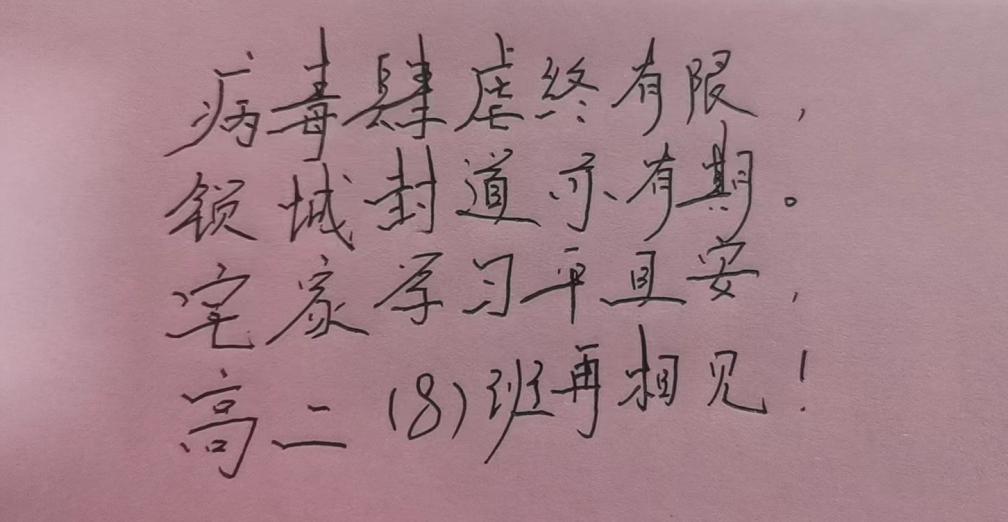 病毒肆虐终有限，
锁城封道亦有期。
宅家学习平且安，
高二（8）班再相见！